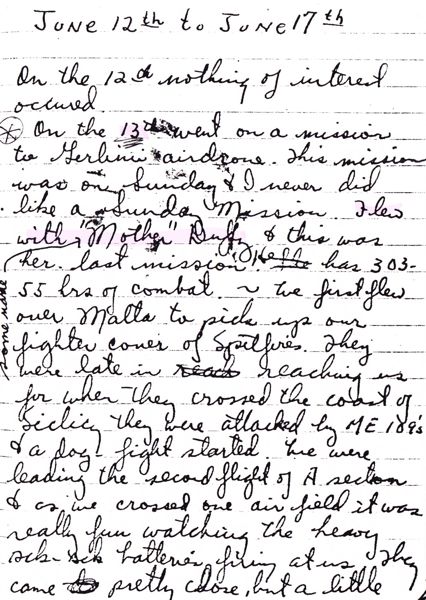 June 12th to June 17th
On the 12th nothing of interest
occured
On the 13th went on a mission
to Gerbini airdrone. This mission
was on Sunday & I never did
like a Sunday Mission. Flew
with "Mother" Duffy & this was
her last mission. He has 303-
55 hrs of combat. ~ We first flew
over Malta to pick up our
fighter cover of Spitfires. They
were late in reaching us
for when they crossed the coast of
Siclicy they were attacked by ME 109's
& a dog-fight started. We were
leading the second flight of A section
& as we crossed one air field it was
really fun watching the heavy
ack-ack batteries firing at us. They
came pretty close, but a little
same name